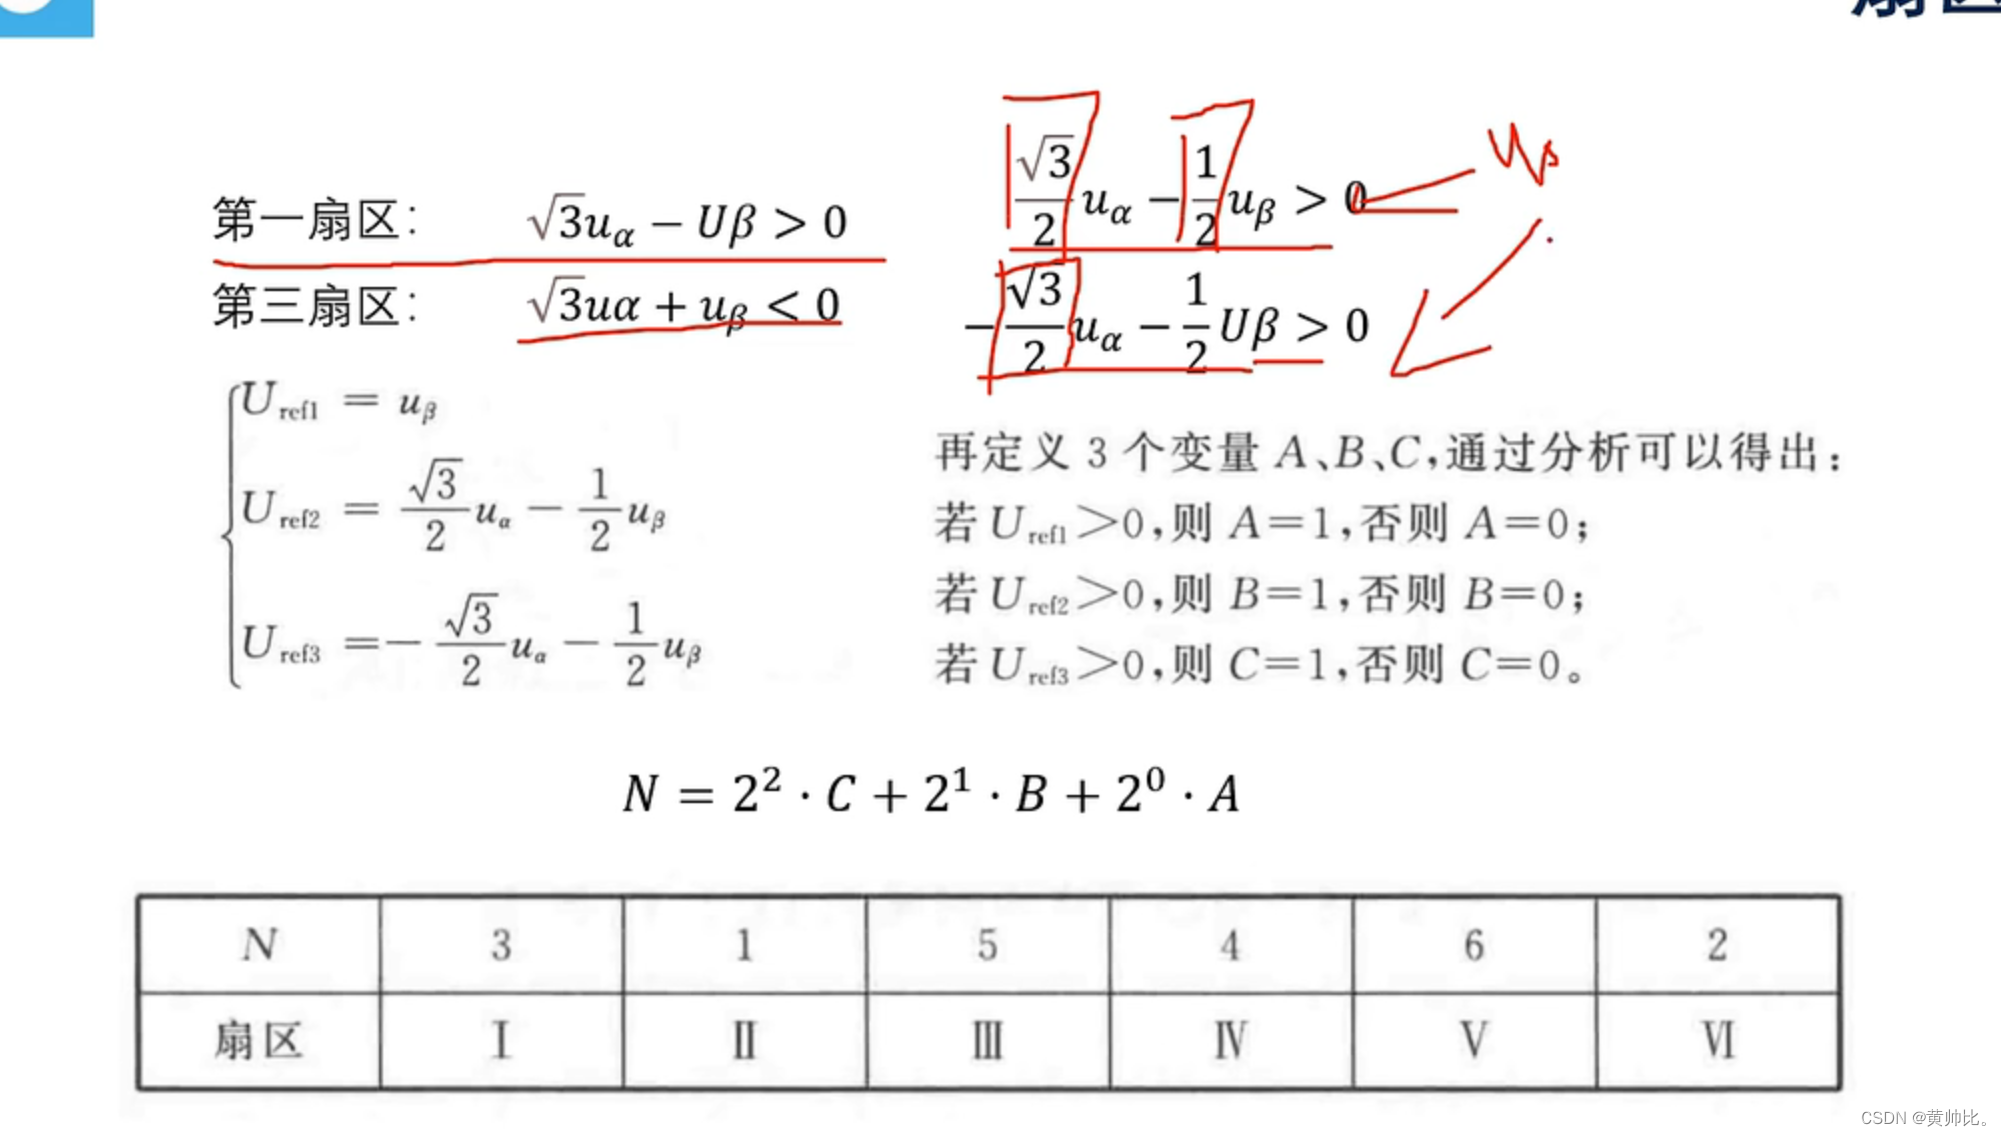 扇区
第一扇区： √3u_α − Uβ > 0
√3/2 u_α − 1/2 u_β > 0
u_β
第三扇区： √3uα + u_β < 0
−√3/2 u_α − 1/2 Uβ > 0
U_ref1 = u_β
U_ref2 = √3/2 u_α − 1/2 u_β
U_ref3 = −√3/2 u_α − 1/2 u_β
再定义 3 个变量 A、B、C,通过分析可以得出:
若 U_ref1>0,则 A=1,否则 A=0;
若 U_ref2>0,则 B=1,否则 B=0;
若 U_ref3>0,则 C=1,否则 C=0。
N = 2² · C + 2¹ · B + 2⁰ · A
N 3 1 5 4 6 2
扇区 Ⅰ Ⅱ Ⅲ Ⅳ Ⅴ Ⅵ
CSDN @黄帅比。